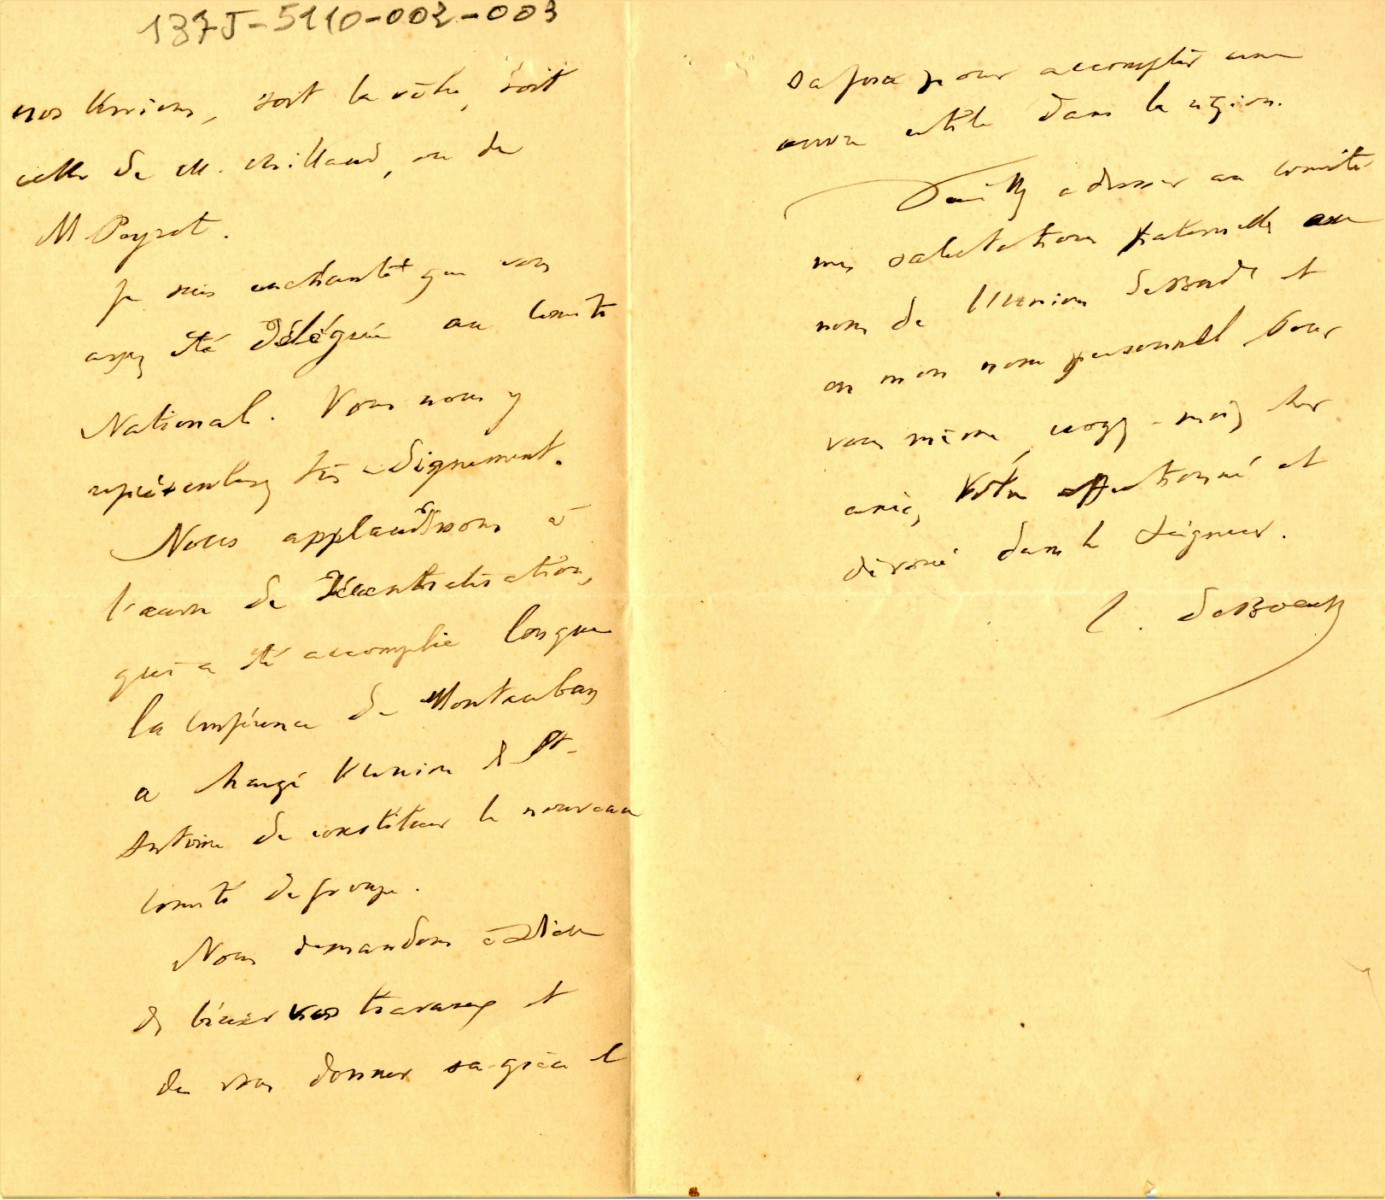 137J-5110-002-003
nos Unions, soit la vôtre, soit
celle de M. Milhaud, ou de
M Peyrot.
Je suis enchanté que vous
ayez été délégué au Comité
National. Vous nous y
représentez très dignement.
Nous applaudissons à
l'œuvre de décentralisation,
qui a été accomplie lorsque
la conférence de Montauban
a chargé l'Union de St-
Antoine de constituer le nouveau
comité de groupe.
Nous demandons à Dieu
de bénir vos travaux et
de vous donner sa grâce et
sa force pour accomplir une
œuvre utile dans la région.
Veuillez adresser au comité
mes salutations fraternelles au
nom de l'Union de et
en mon nom personnel. Pour
vous même, croyez-moi, cher
ami, Votre affectionné et
dévoué dans le Seigneur.